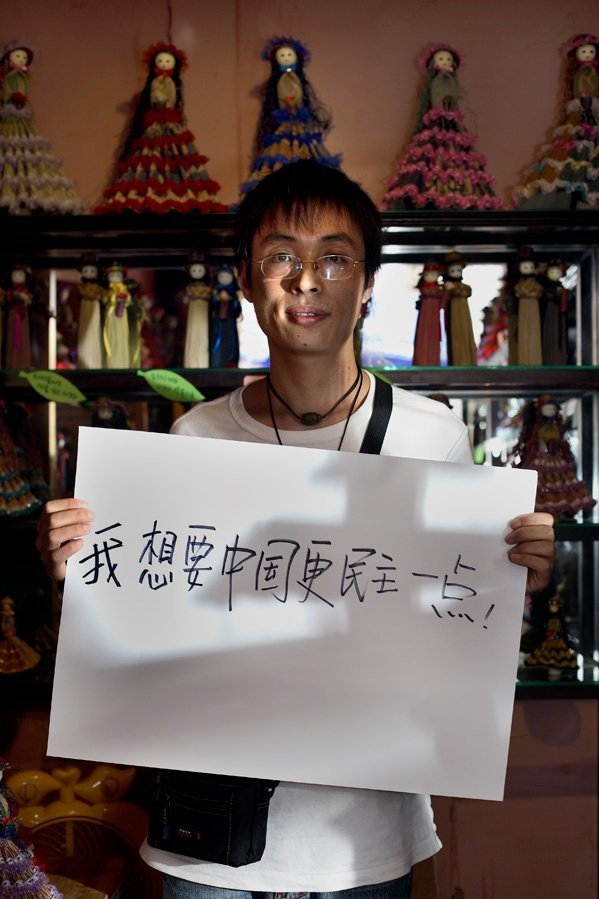 我想要中国更民主一点!